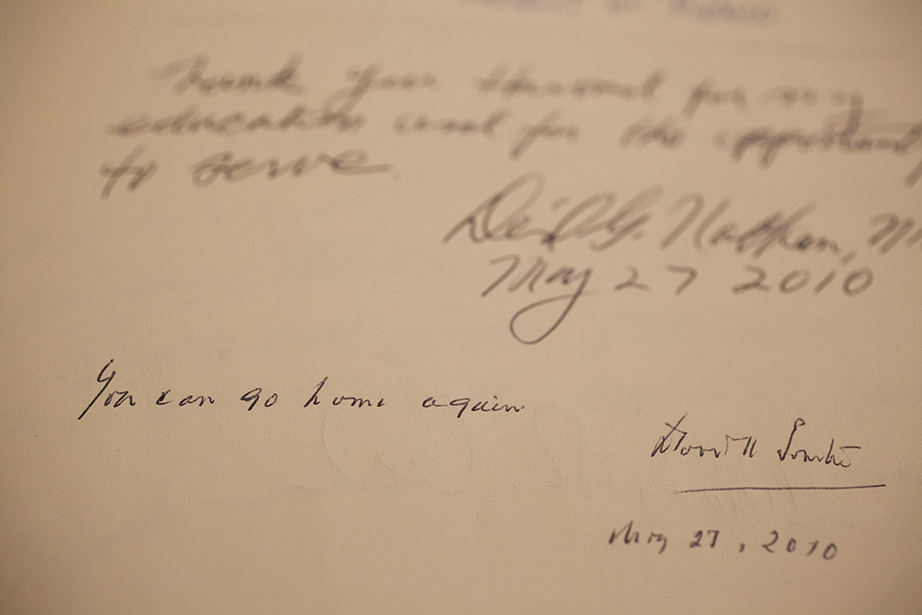 Thank you Harvard for my
education and for the opportunity
to serve.
David G. Nathan, M
May 27 2010
You can go home again
David H Souter
May 27, 2010